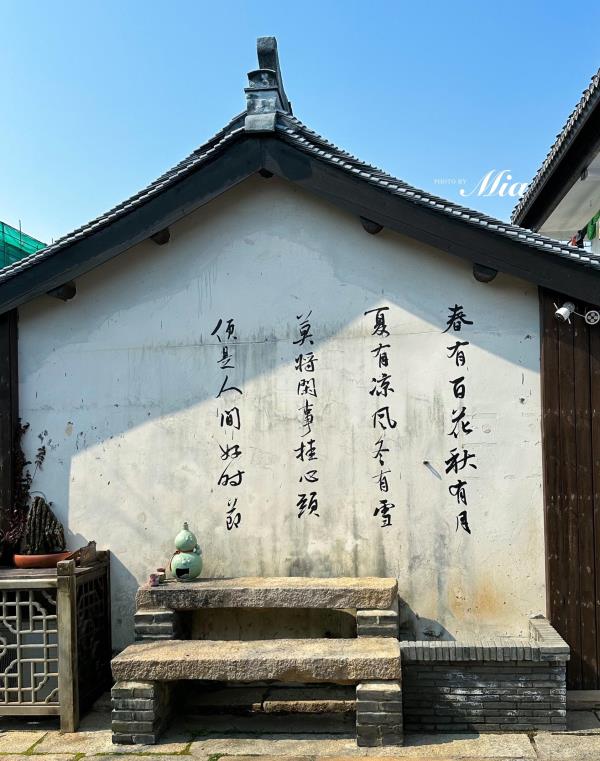 PHOTO BY Mia
春有百花秋有月
夏有凉风冬有雪
莫将閑事挂心頭
便是人间好时節